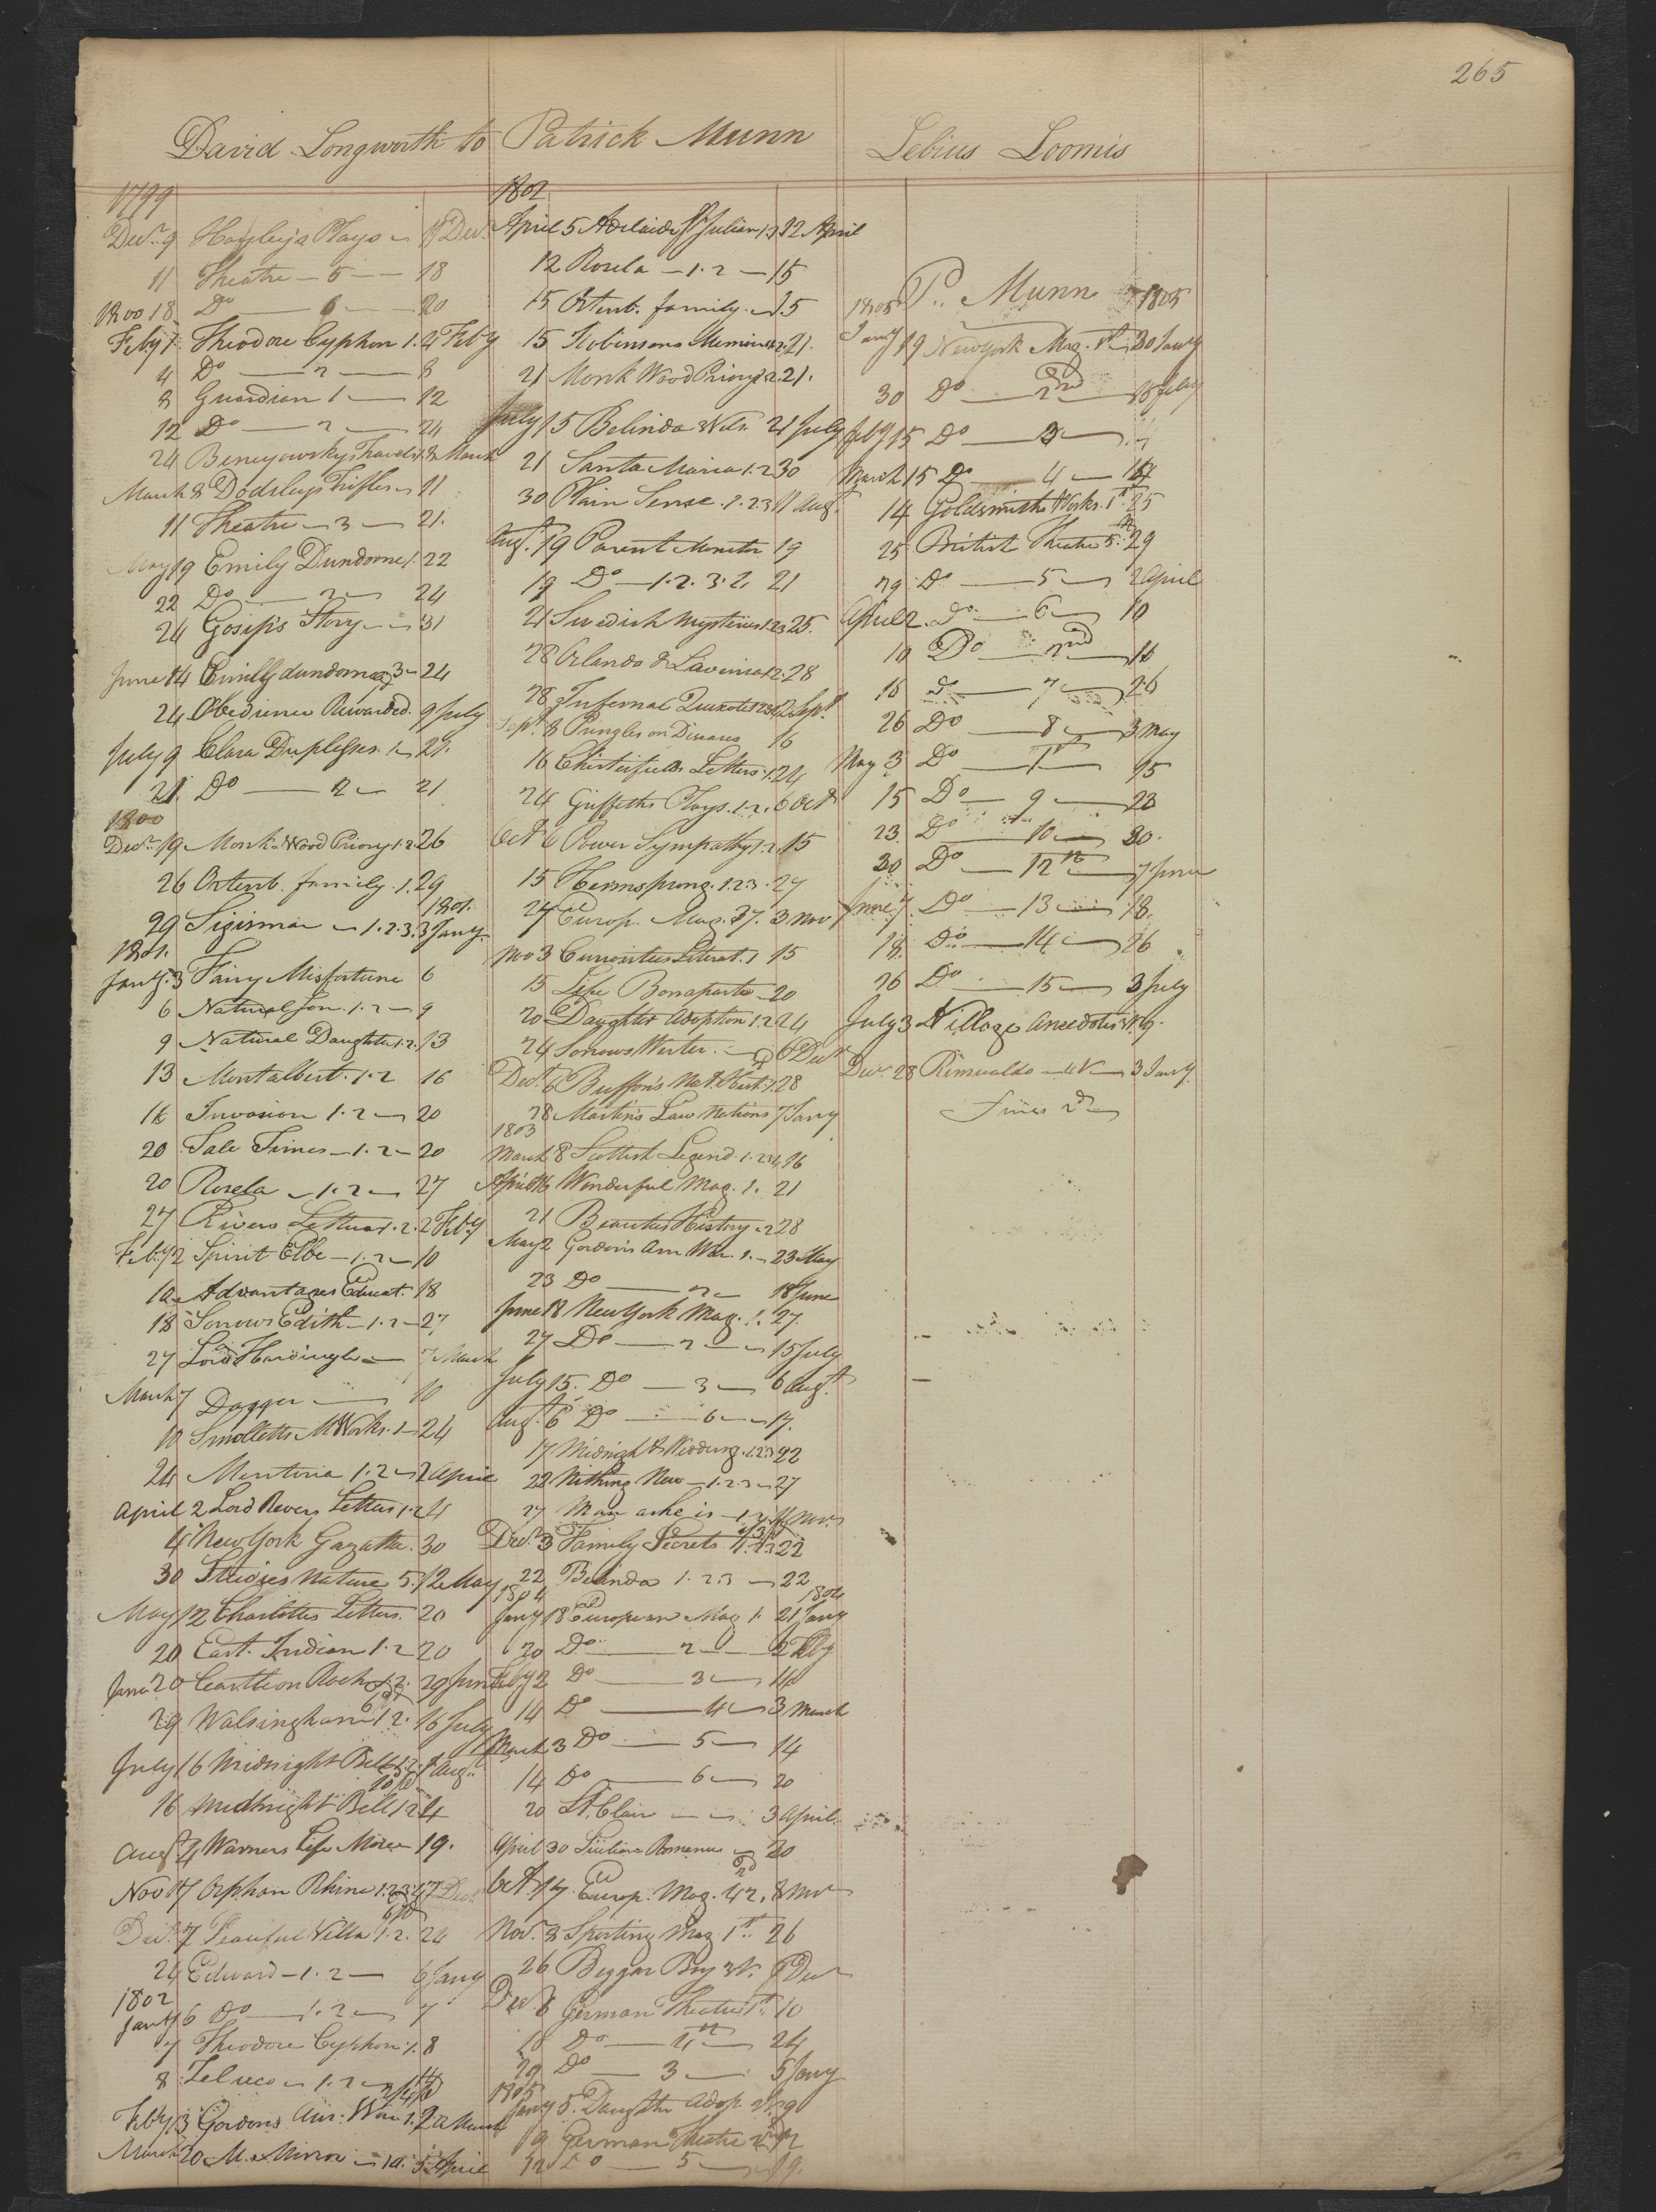 265
David Longworth to Patrick Munn
Lebius Loomis
1799
Decr. 9 Hayley's Plays 11 Decr
11 Theatre 5 18
1800 18 Do 6 20
Feby 1 Theodore Cyphon 1. 4 Feby
4 Do 2 8
8 Guardian 1 12
12 Do 2 24
24 Benyowsky Travels 1. 8 March
March 8 Dodsleys Trifles 11
11 Theatre 3 21.
May 19 Emily Dundorne 1. 22
22 Do 2 24
24 Gosip's Story 31
June 14 Emilly dundorne 3 24
24 Obedience Rewarded. 9 July
July 9 Clara Duplessis 1 21.
21. Do 2 21
1800
Decr. 19 Monk Wood Priory 1.2. 26
26 Ortenb. family. 1. 29
1801.
29 Sigismar 1.2.3. 3 Jany.
1801.
Jany. 3 Fairy Misfortune 6
6 Natural Son. 1.2 9
9 Natural Daughter 1.2. 13
13 Montalbert. 1.2 16
16 Invasion 1.2 20
20 Tale Times 1.2 20
20 Rosela 1.2 27
27 Rivers Letters 1.2. 2 Feby
Feby 2 Spirit Elbe 1.2 10
10 Advantages Educat. 18
18 Sorrows Edith 1.2 27
27 Lord Hardingle 7 March
March 7 Dagger 10
10 Smolletts M Works. 1 24
24 Mentoria 1.2 2 April
April 2 Lord Revers Letters 1.2 4
4 New York Gazatte. 30
30 Studies Nature 5. 12 May
May 12 Charlottes Letters. 20
20 East. Indian 1.2 20
June 20 Castleon Rock 1.2. 29 June
29 Walsingham 1.2. 16 July
July 16 Midnight Bell 1.2. 1 Augt.
16 Midnight Bell 1.2 4
Augt 4 Warners Life Moore 19.
Nov 17 Orphan Rhine 1.2.3. 7 Dec
Decr. 7 Peaceful Villa 1.2. 24
24 Edward 1.2 6 Jany
1802
Jany 6 Do 1.2 7
7 Theodore Cyphon 1. 8
8 Zeluco 1.2 14
Feby 13 Gordons Am: War 1. 20 March
March 20 M. Mirror 10. 5 April
1802
April 5 Adelaide St Julian 1.2 12 April
12 Rosela 1.2 15
15 Ortenb. family. 15
15 Robinsons Memoirs 1.2. 21.
21 Monk Wood Priory 1.2. 21.
July 15 Belinda 3 Vols. 21 July
21 Santa Maria 1.2 30
30 Plain Sense 1.2.3 11 Augt.
Augt. 19 Parent Monitor 19
19 Do 1.2.3. 21
21 Swedish Mysteries 1.2.3 25.
28 Orlando & Lavinia 1.2. 28
28 Infernal Quixote 1.2.3.4 2 Sept.
Sept. 8 Pringle on Diseases 16
16 Chesterfields Letters. 1. 24
24 Griffeths Plays. 1.2. 6 Oct
Oct 6 Power Sympathy 1.2. 15
15 Hermsprong. 1.2.3. 27
27 Europ. Mag. 37. 3 Nov
Nov 3 Curiosities Literat. 1 15
15 Life Bonaparte 20
20 Daughter Adoption 1.2 24
24 Sorrows Werter. 6 Decr
Decr. 6 Buffon's Nat. Hist. 1. 28
28 Martins Law Nations 7 Jany
1803
March 8 Scottish Legend 1.2.3.4 16
April 16 Wonderful Mag. 1. 21
21 Beauties History 2 28
May 2 Gordon's Am War. 1. 23 May
23 Do 2 18 June
June 18 New York Mag. 1. 27.
27 Do 2 15 July
July 15. Do 3 6 Augt.
Augt. 6 Do 6 17.
17 Midnight Wedding. 1.2.3 22
22 Nothing New 1.2.3 27
27 Man as he is 1.2. Nov.
Decr. 3 Family Secrets 22
22 Belinda 1.2.3 22
1804
1804
Jany 18 European Mag 1. 21 Jany
20 Do 2 2 Feby
Feby 2 Do 3 14
14 Do 4 3 March
March 3 Do 5 14
14 Do 6 20
20 St. Clair 3 April
April 30 Sicilian Romance 20
Oct. 17. Europ. Mag. 42. 8 Nov
Nov. 8 Sporting Mag 1st. 26
26 Beggar Boy 3 V. 8 Decr
Decr. 8 German Theatre 1st. 10
10 Do 4th 24
29 Do 3 5 Jany
1805
Jany 5. Daughter Adop. 2 V. 9
9 German Theatre 12
12 Do 5 19.
P. Munn
1805
1805
Jany 19 New York Mag. 1st 30 Jany
30 Do 2nd 15 Feby
Feby 15 Do 3
March 15 Do 4 14
14 Goldsmiths Works. 1st 25
25 British Theatre 5th 29
29 Do 5 2 April
April 2. Do 6 10
10 Do 2nd 16
16 Do 7 26
26 Do 8 3 May
May 3 Do 1st 15
15 Do 9 23
23. Do 10 30.
30 Do 12th 7 June
June 7. Do 13 18.
18. Do 14 26
26 Do 15 3 July
July 3 Village Anecdotes 9.
Decr. 28 Rimualdo 4 V 3 Jany.
Fines